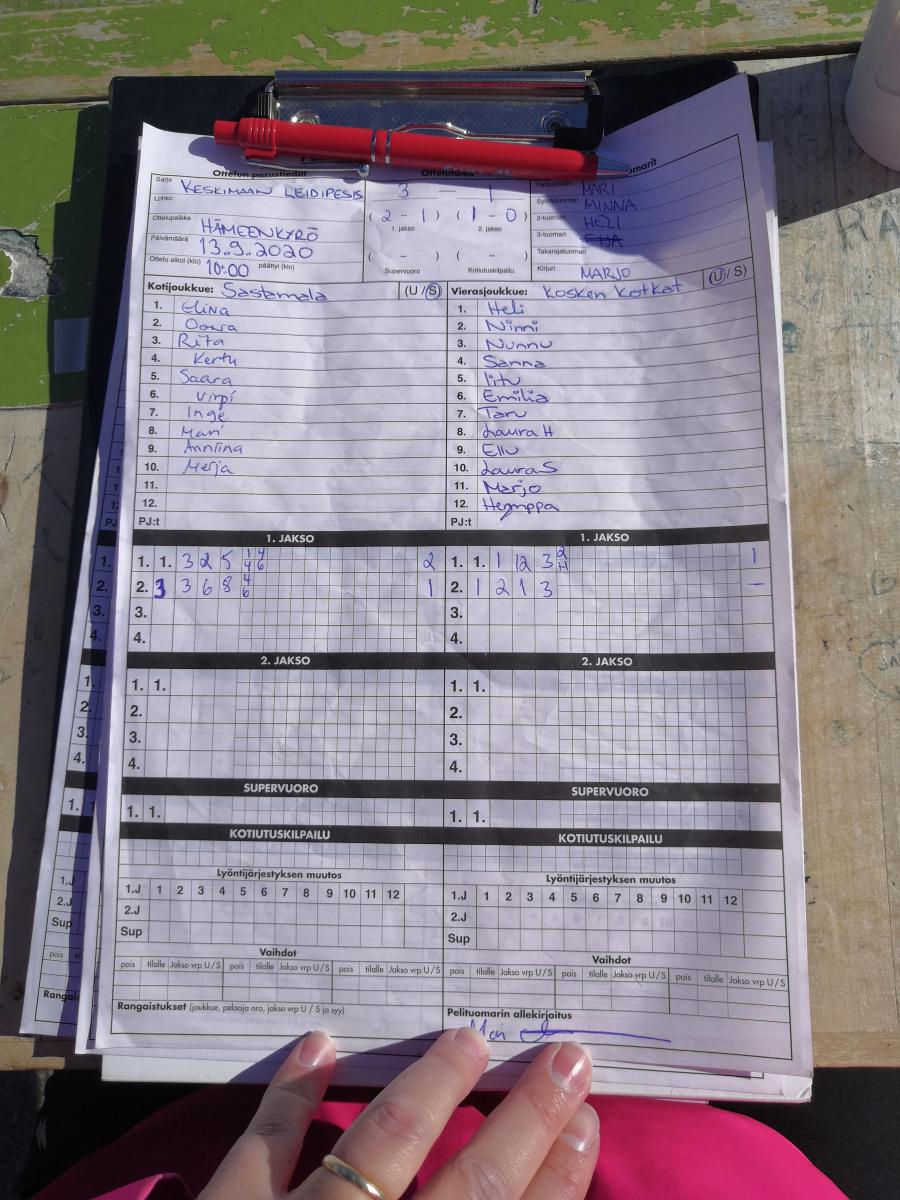 Ottelun perustiedot
Sarja KESKIMAAN LEIDIPESIS
Lohko
Ottelupaikka HÄMEENKYRÖ
Päivämäärä 13.9.2020
Ottelu alkoi (klo) 10:00 päättyi (klo)
Ottelutulos
3 – 1
( 2 - 1 ) ( 1 - 0 )
1. jakso 2. jakso
( - ) ( - )
Supervuoro Kotiutuskilpailu
Pelituomari MARI
Syöttötuomari MINNA
2-tuomari HELI
3-tuomari EIJA
Takarajatuomari
Kirjuri MARJO
Kotijoukkue: Sastamala (U / S)
1. Elina
2. Oona
3. Rita
4. Kerttu
5. Saara
6. Virpi
7. Inge
8. Mari
9. Anniina
10. Merja
11.
12.
PJ:t
Vierasjoukkue: Kosken Kotkat (U / S)
1. Heli
2. Ninni
3. Nunnu
4. Sanna
5. Iitu
6. Emilia
7. Taru
8. Laura H
9. Ellu
10. Laura S
11. Marjo
12.
PJ:t
1. JAKSO
1. 1. 3 2 5 1 4 4 6 2
2. 3 3 6 8 4 6 1
3.
4.
1. JAKSO
1. 1. 1 12 3 1
2. 1 2 1 3 –
3.
4.
2. JAKSO
1. 1.
2.
3.
4.
2. JAKSO
1. 1.
2.
3.
4.
SUPERVUORO
1. 1.
SUPERVUORO
1. 1.
KOTIUTUSKILPAILU
KOTIUTUSKILPAILU
Lyöntijärjestyksen muutos
1.J 1 2 3 4 5 6 7 8 9 10 11 12
2.J
Sup
Lyöntijärjestyksen muutos
1.J 1 2 3 4 5 6 7 8 9 10 11 12
2.J
Sup
Vaihdot
pois tilalle Jakso vrp U / S pois tilalle Jakso vrp U / S pois tilalle Jakso vrp U / S
Vaihdot
pois tilalle Jakso vrp U / S pois tilalle Jakso vrp U / S pois tilalle Jakso vrp U / S
Rangaistukset (joukkue, pelaaja nro, jakso vrp U / S ja syy)
Pelituomarin allekirjoitus